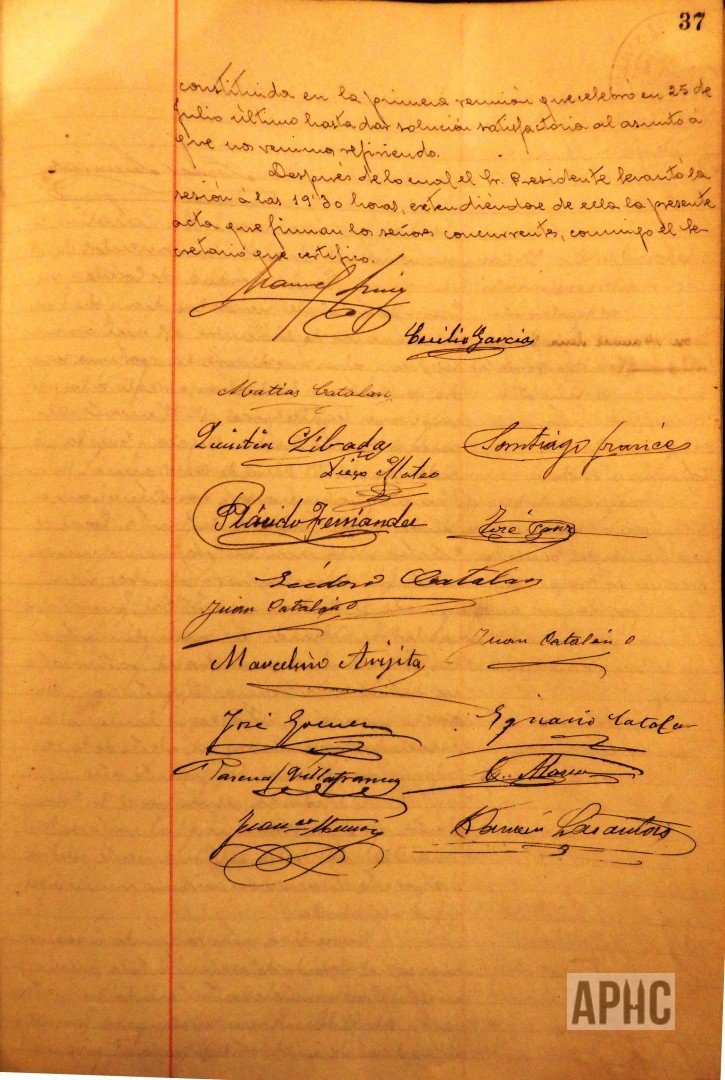 37
constituida en la primera reunión que celebró en 25 de
Julio último hasta dar solución satisfactoria al asunto a
que nos venimos refiriendo.
Después de lo cual el Sr. Presidente levantó la
sesión á las 19'30 horas, extendiendose de ella la presente
acta que firman los señores concurrentes, conmigo el Se-
cretario que certifico.
Manuel
Cecilio García
Matias Catalan
Quintin Santiago
Diego Mateo
Plácido Fernández José Sanz
Isidoro Catalan
Juan Catalán
Juan Catalán
Marcelino
José Ignacio Catalan
Pascual Villafranca
Ramón Lasantos
APHC